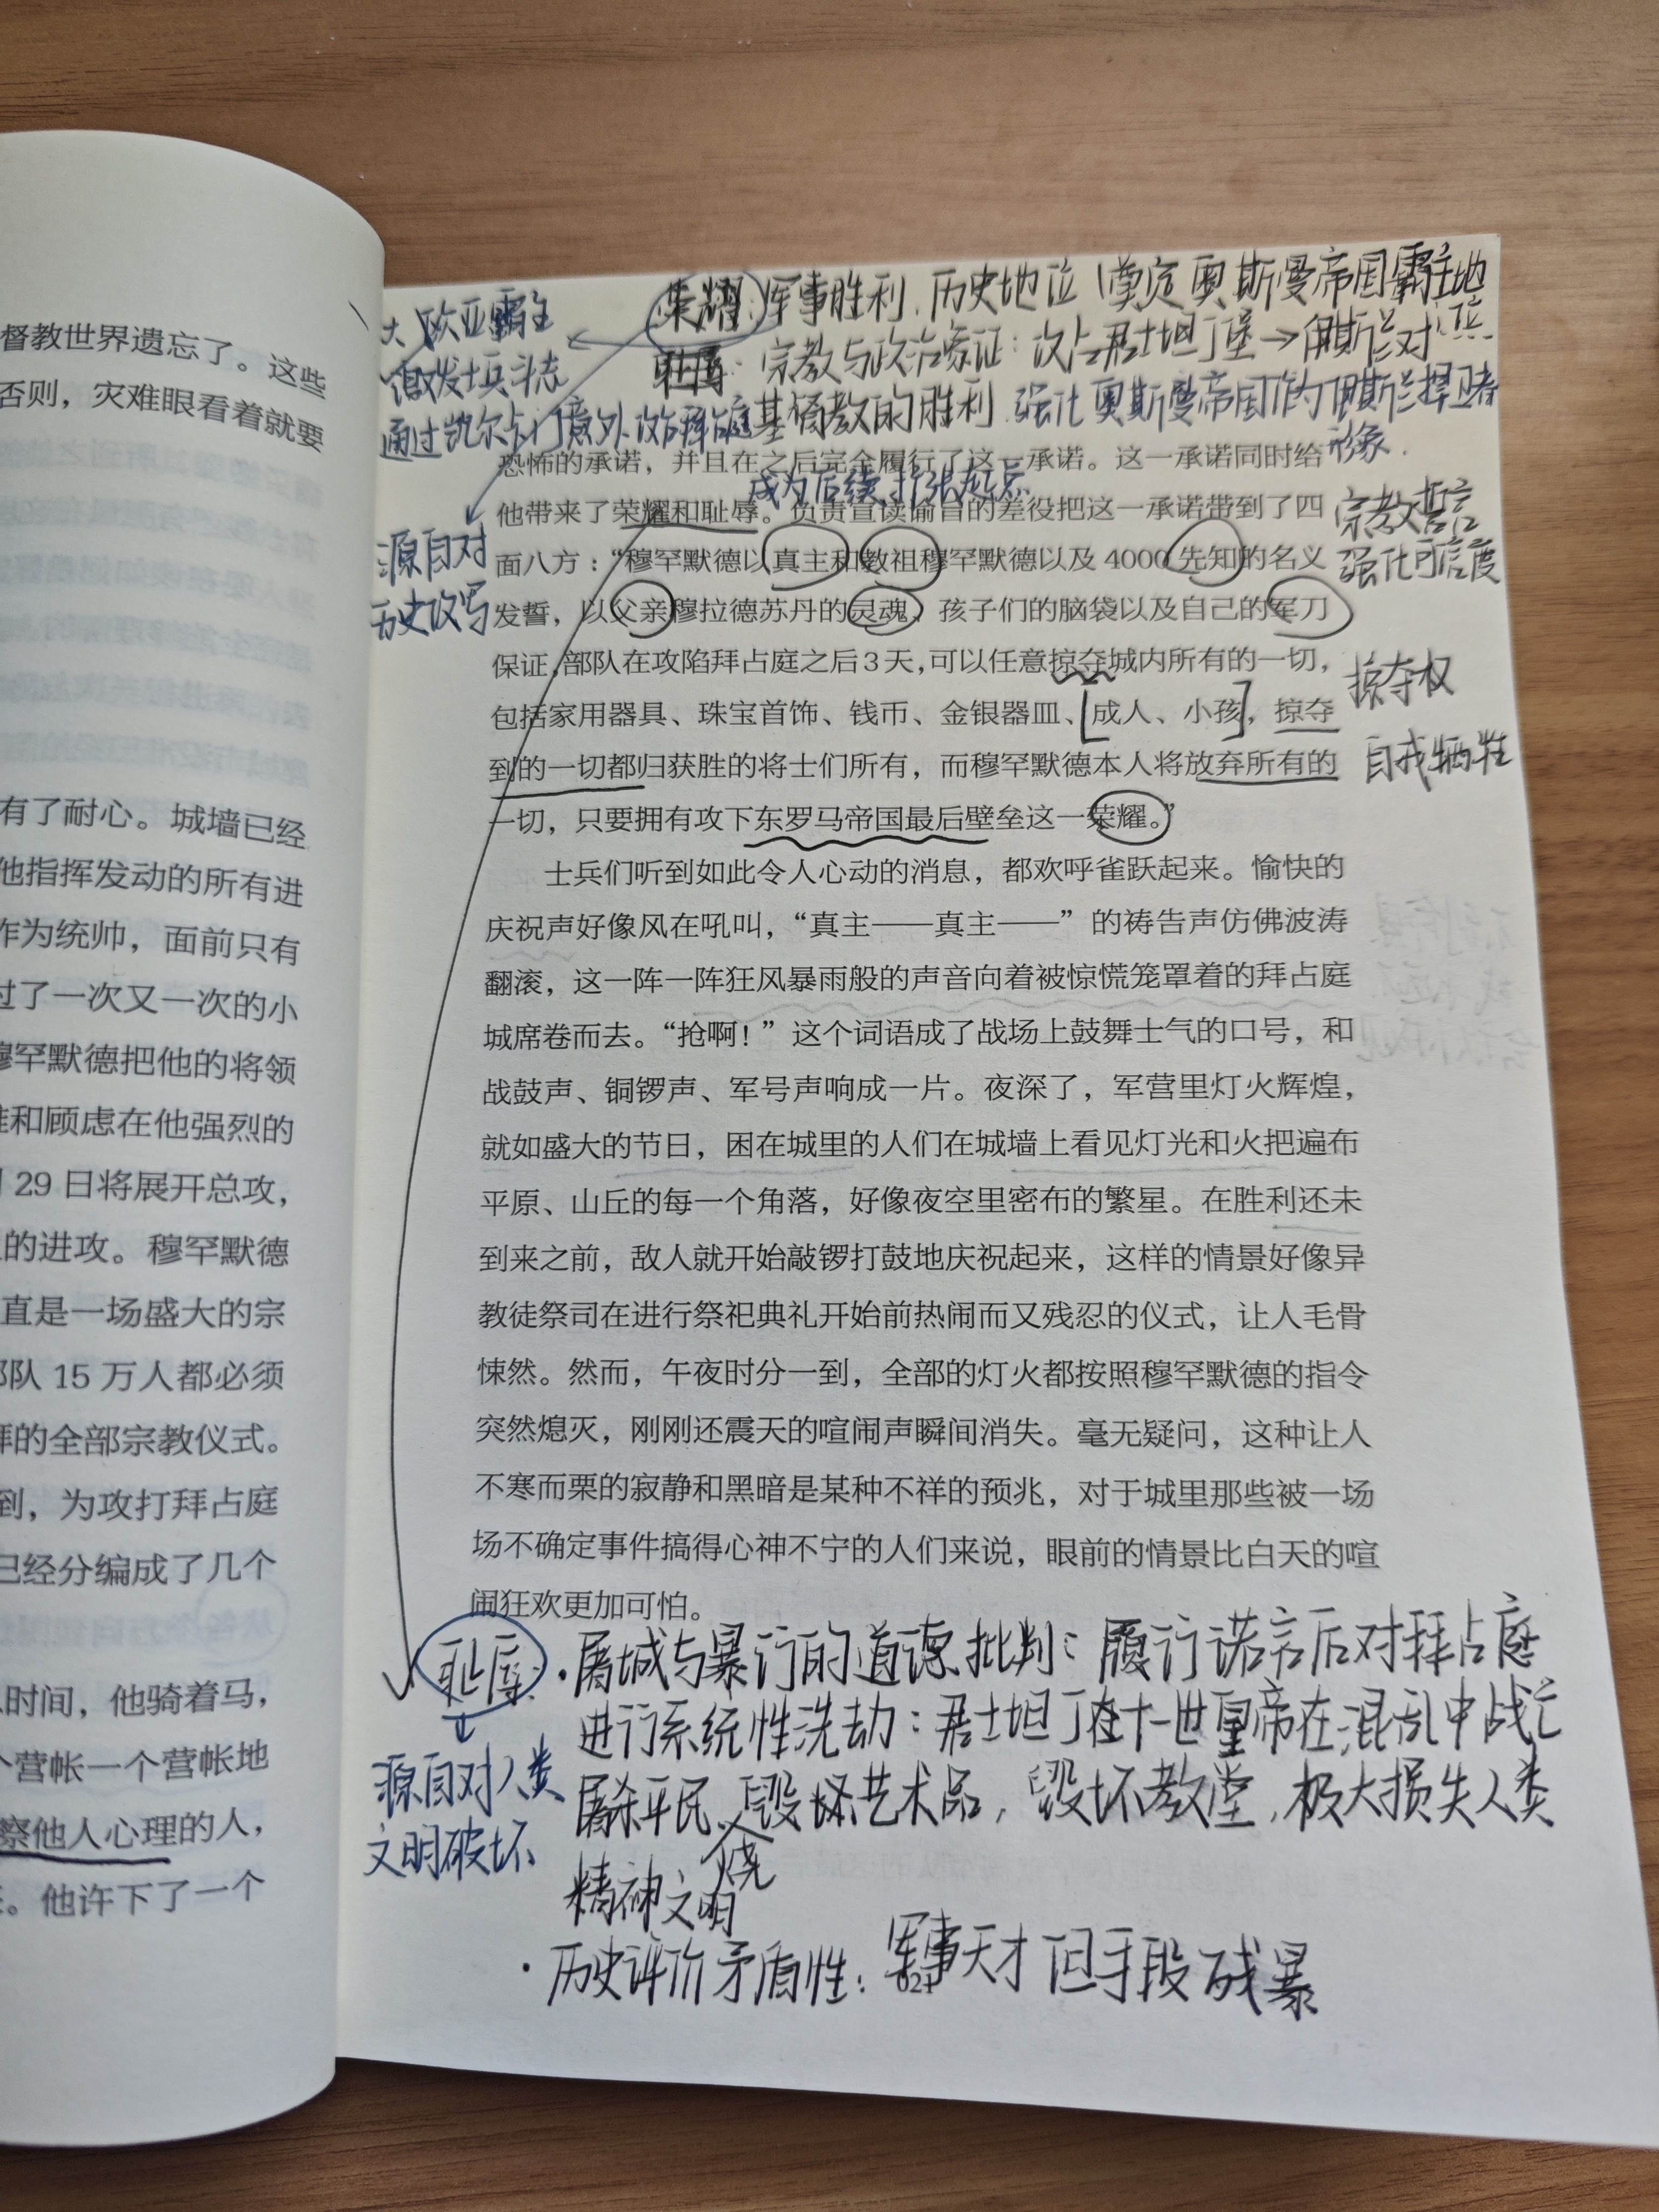 督教世界遗忘了。这些
否则，灾难眼看着就要
有了耐心。城墙已经
他指挥发动的所有进
作为统帅，面前只有
过了一次又一次的小
穆罕默德把他的将领
和顾虑在他强烈的
29日将展开总攻，
的进攻。穆罕默德
直是一场盛大的宗
部队15万人都必须
拜的全部宗教仪式。
到，为攻打拜占庭
已经分编成了几个
时间，他骑着马，
个营帐一个营帐地
察他人心理的人，
他许下了一个
欧亚霸主
激发士兵斗志
通过凯尔卡门意外攻陷拜占庭
荣耀：军事胜利，历史地位（奠定奥斯曼帝国霸主地位
耻辱：宗教与政治象征：攻占君士坦丁堡→伊斯兰对
基督教的胜利，强化奥斯曼帝国作为伊斯兰捍卫者
形象．
成为后续扩张起点
源自对
历史改写
恐怖的承诺，并且在之后完全履行了这一承诺。这一承诺同时给
他带来了荣耀和耻辱。负责宣读谕旨的差役把这一承诺带到了四
面八方：“穆罕默德以真主和教祖穆罕默德以及4000先知的名义
发誓，以父亲穆拉德苏丹的灵魂、孩子们的脑袋以及自己的军刀
保证，部队在攻陷拜占庭之后3天，可以任意掠夺城内所有的一切，
包括家用器具、珠宝首饰、钱币、金银器皿、成人、小孩，掠夺
到的一切都归获胜的将士们所有，而穆罕默德本人将放弃所有的
一切，只要拥有攻下东罗马帝国最后壁垒这一荣耀。”
宗教誓言
强化可信度
掠夺权
自我牺牲
士兵们听到如此令人心动的消息，都欢呼雀跃起来。愉快的
庆祝声好像风在吼叫，“真主——真主——”的祷告声仿佛波涛
翻滚，这一阵一阵狂风暴雨般的声音向着被惊慌笼罩着的拜占庭
城席卷而去。“抢啊！”这个词语成了战场上鼓舞士气的口号，和
战鼓声、铜锣声、军号声响成一片。夜深了，军营里灯火辉煌，
就如盛大的节日，困在城里的人们在城墙上看见灯光和火把遍布
平原、山丘的每一个角落，好像夜空里密布的繁星。在胜利还未
到来之前，敌人就开始敲锣打鼓地庆祝起来，这样的情景好像异
教徒祭司在进行祭祀典礼开始前热闹而又残忍的仪式，让人毛骨
悚然。然而，午夜时分一到，全部的灯火都按照穆罕默德的指令
突然熄灭，刚刚还震天的喧闹声瞬间消失。毫无疑问，这种让人
不寒而栗的寂静和黑暗是某种不祥的预兆，对于城里那些被一场
场不确定事件搞得心神不宁的人们来说，眼前的情景比白天的喧
闹狂欢更加可怕。
耻辱：·屠城与暴行的道德批判：履行诺言后对拜占庭
进行系统性洗劫：君士坦丁在十一世皇帝在混乱中战亡
屠杀平民，毁坏艺术品，毁坏教堂，极大损失人类
烧
精神文明
源自对人类
文明破坏
·历史评价矛盾性：军事天才但手段残暴
021